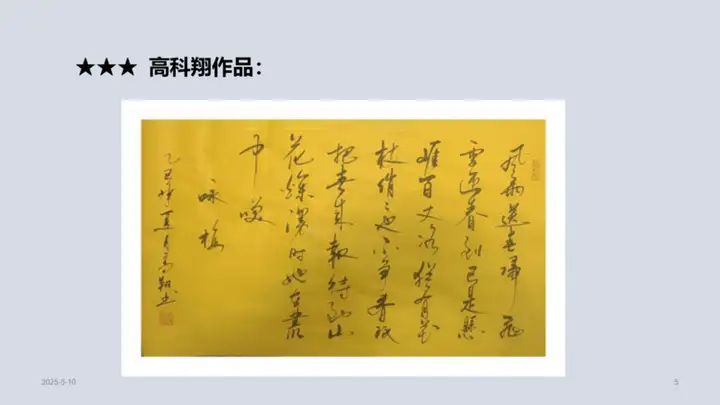 ★★★ 高科翔作品：
风雨送春歸飞
雪迎春到已是懸
崖百丈冰犹有花
枝俏俏也不争春只
把春来報待到山
花爛漫时她在叢
中笑
咏梅
乙巳年夏月高翔书
2025-5-10
5